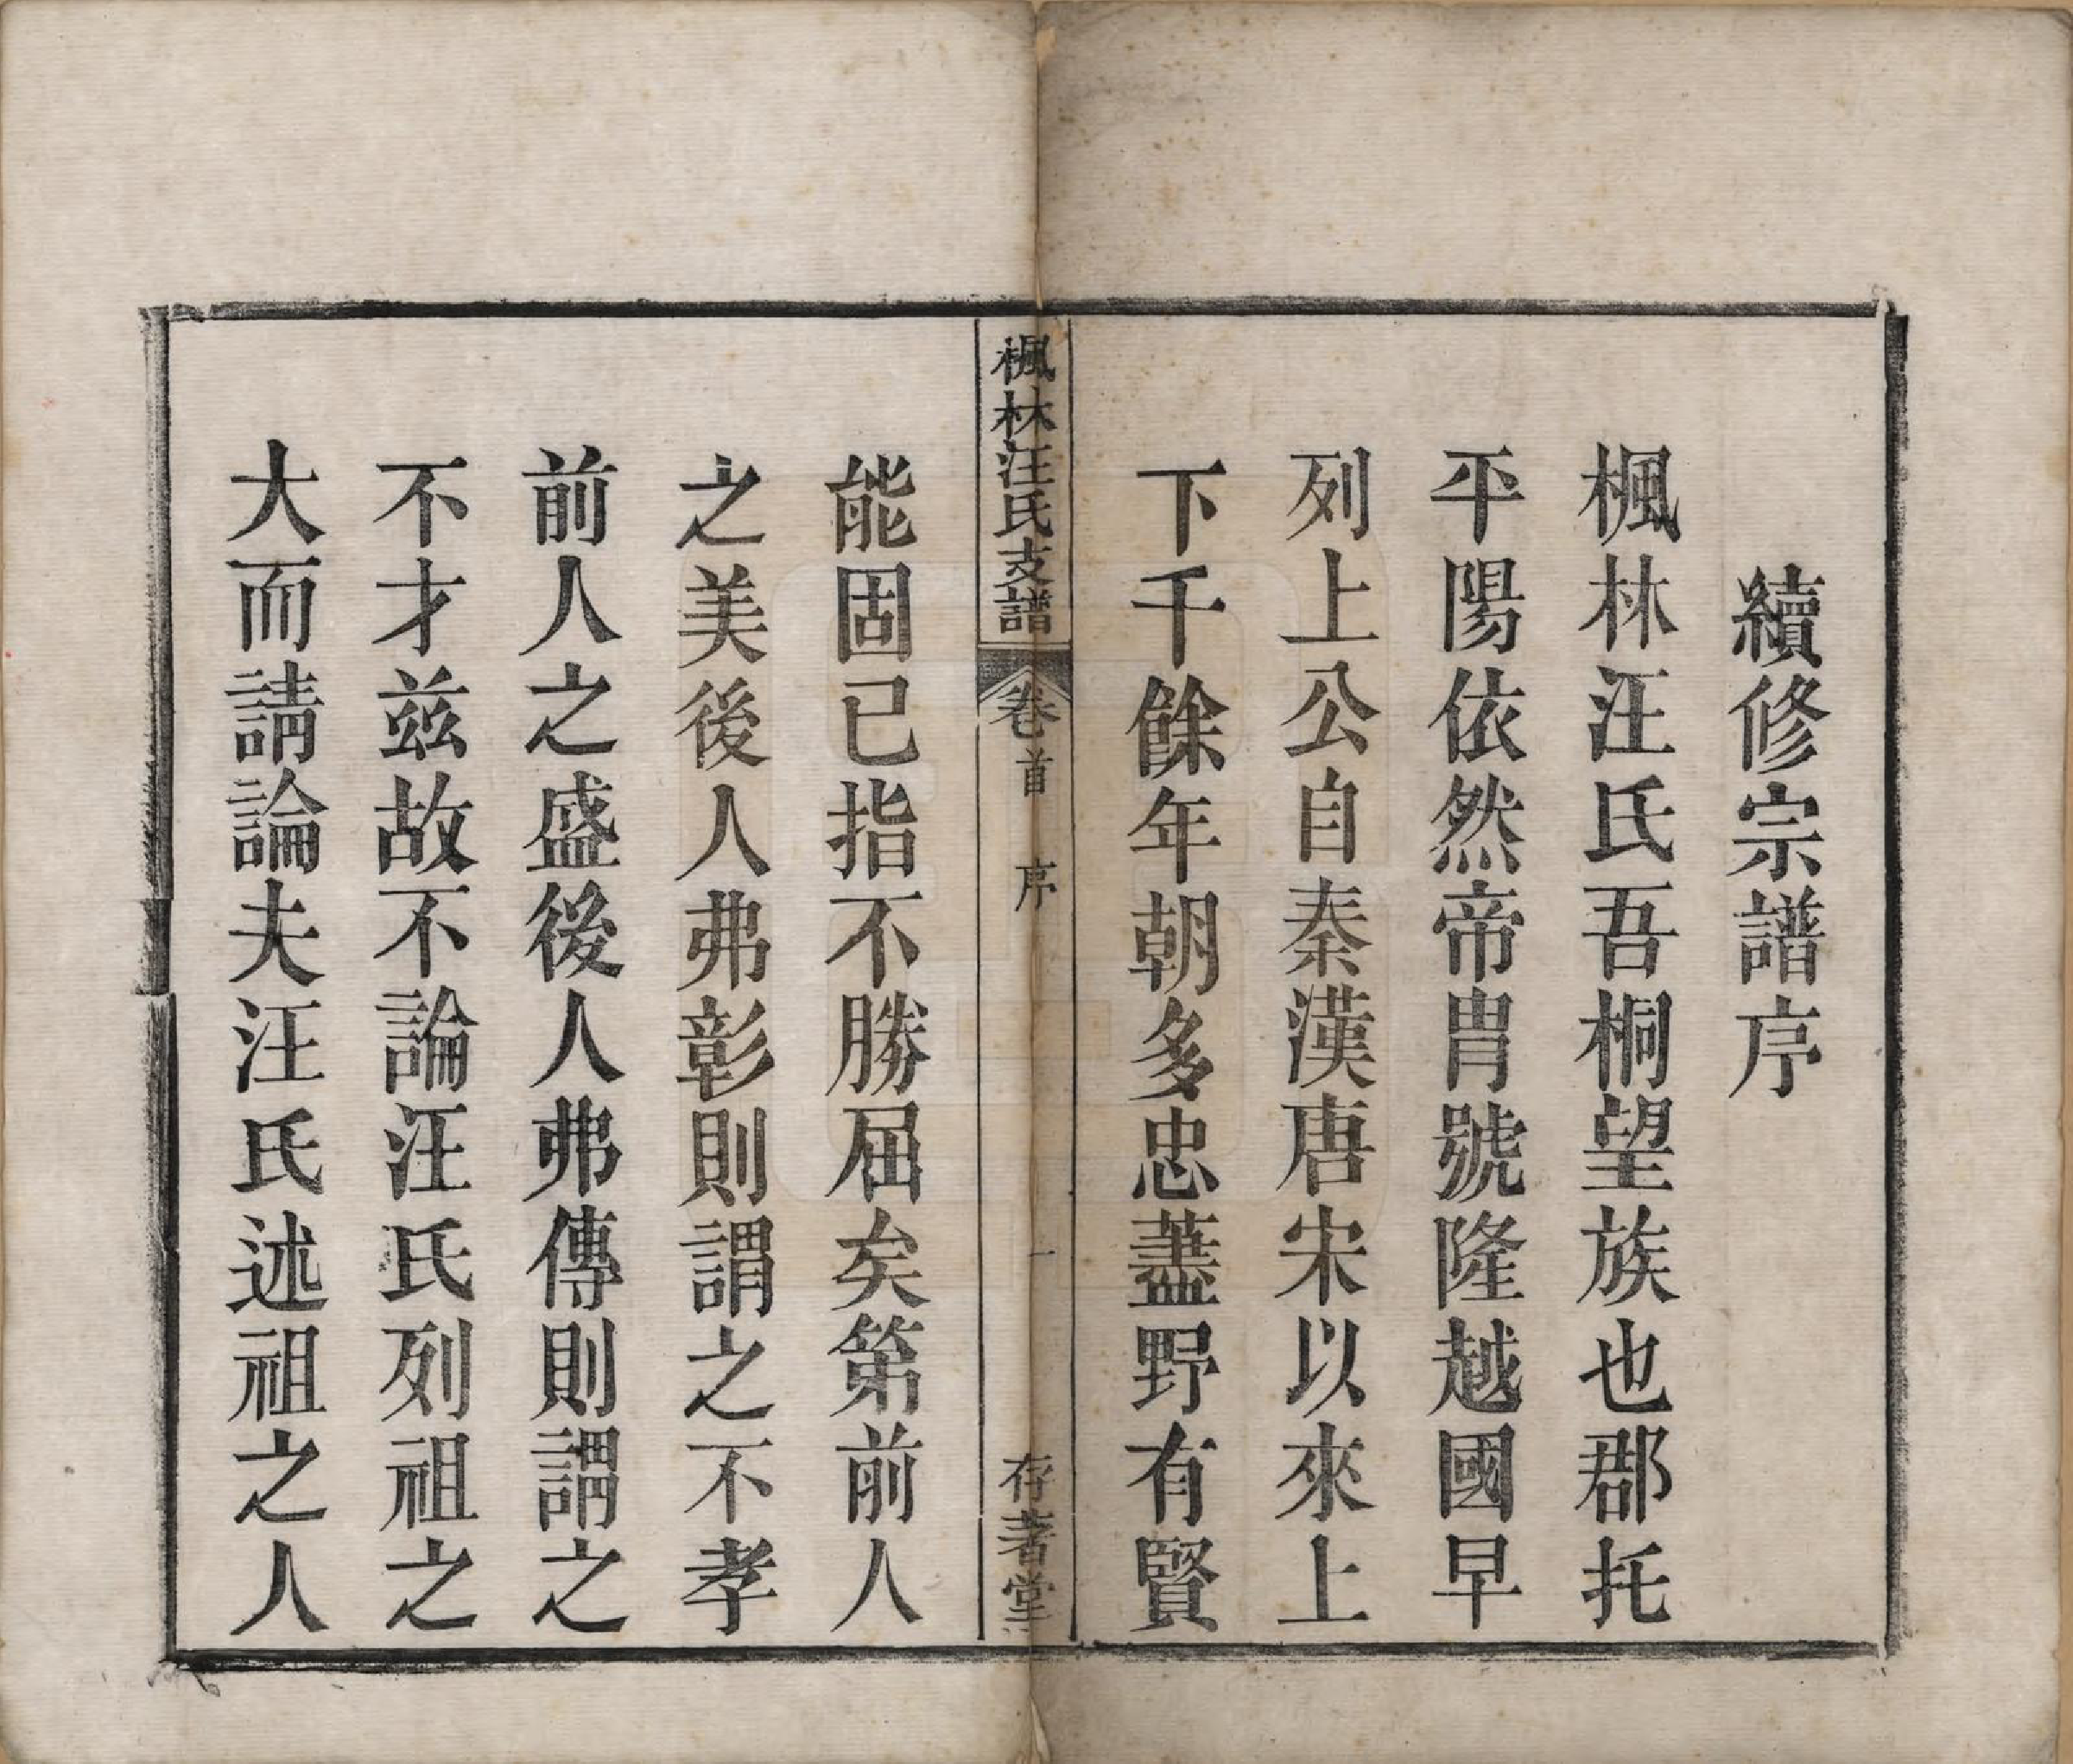 續修宗譜序
楓林汪氏吾桐望族也郡托
平陽依然帝胄號隆越國早
列上公自秦漢唐宋以來上
下千餘年朝多忠藎野有賢
楓林汪氏支譜 卷首 序 一 存著堂
能固已指不勝屈矣第前人
之美後人弗彰則謂之不孝
前人之盛後人弗傳則謂之
不才兹故不論汪氏列祖之
大而請論夫汪氏述祖之人